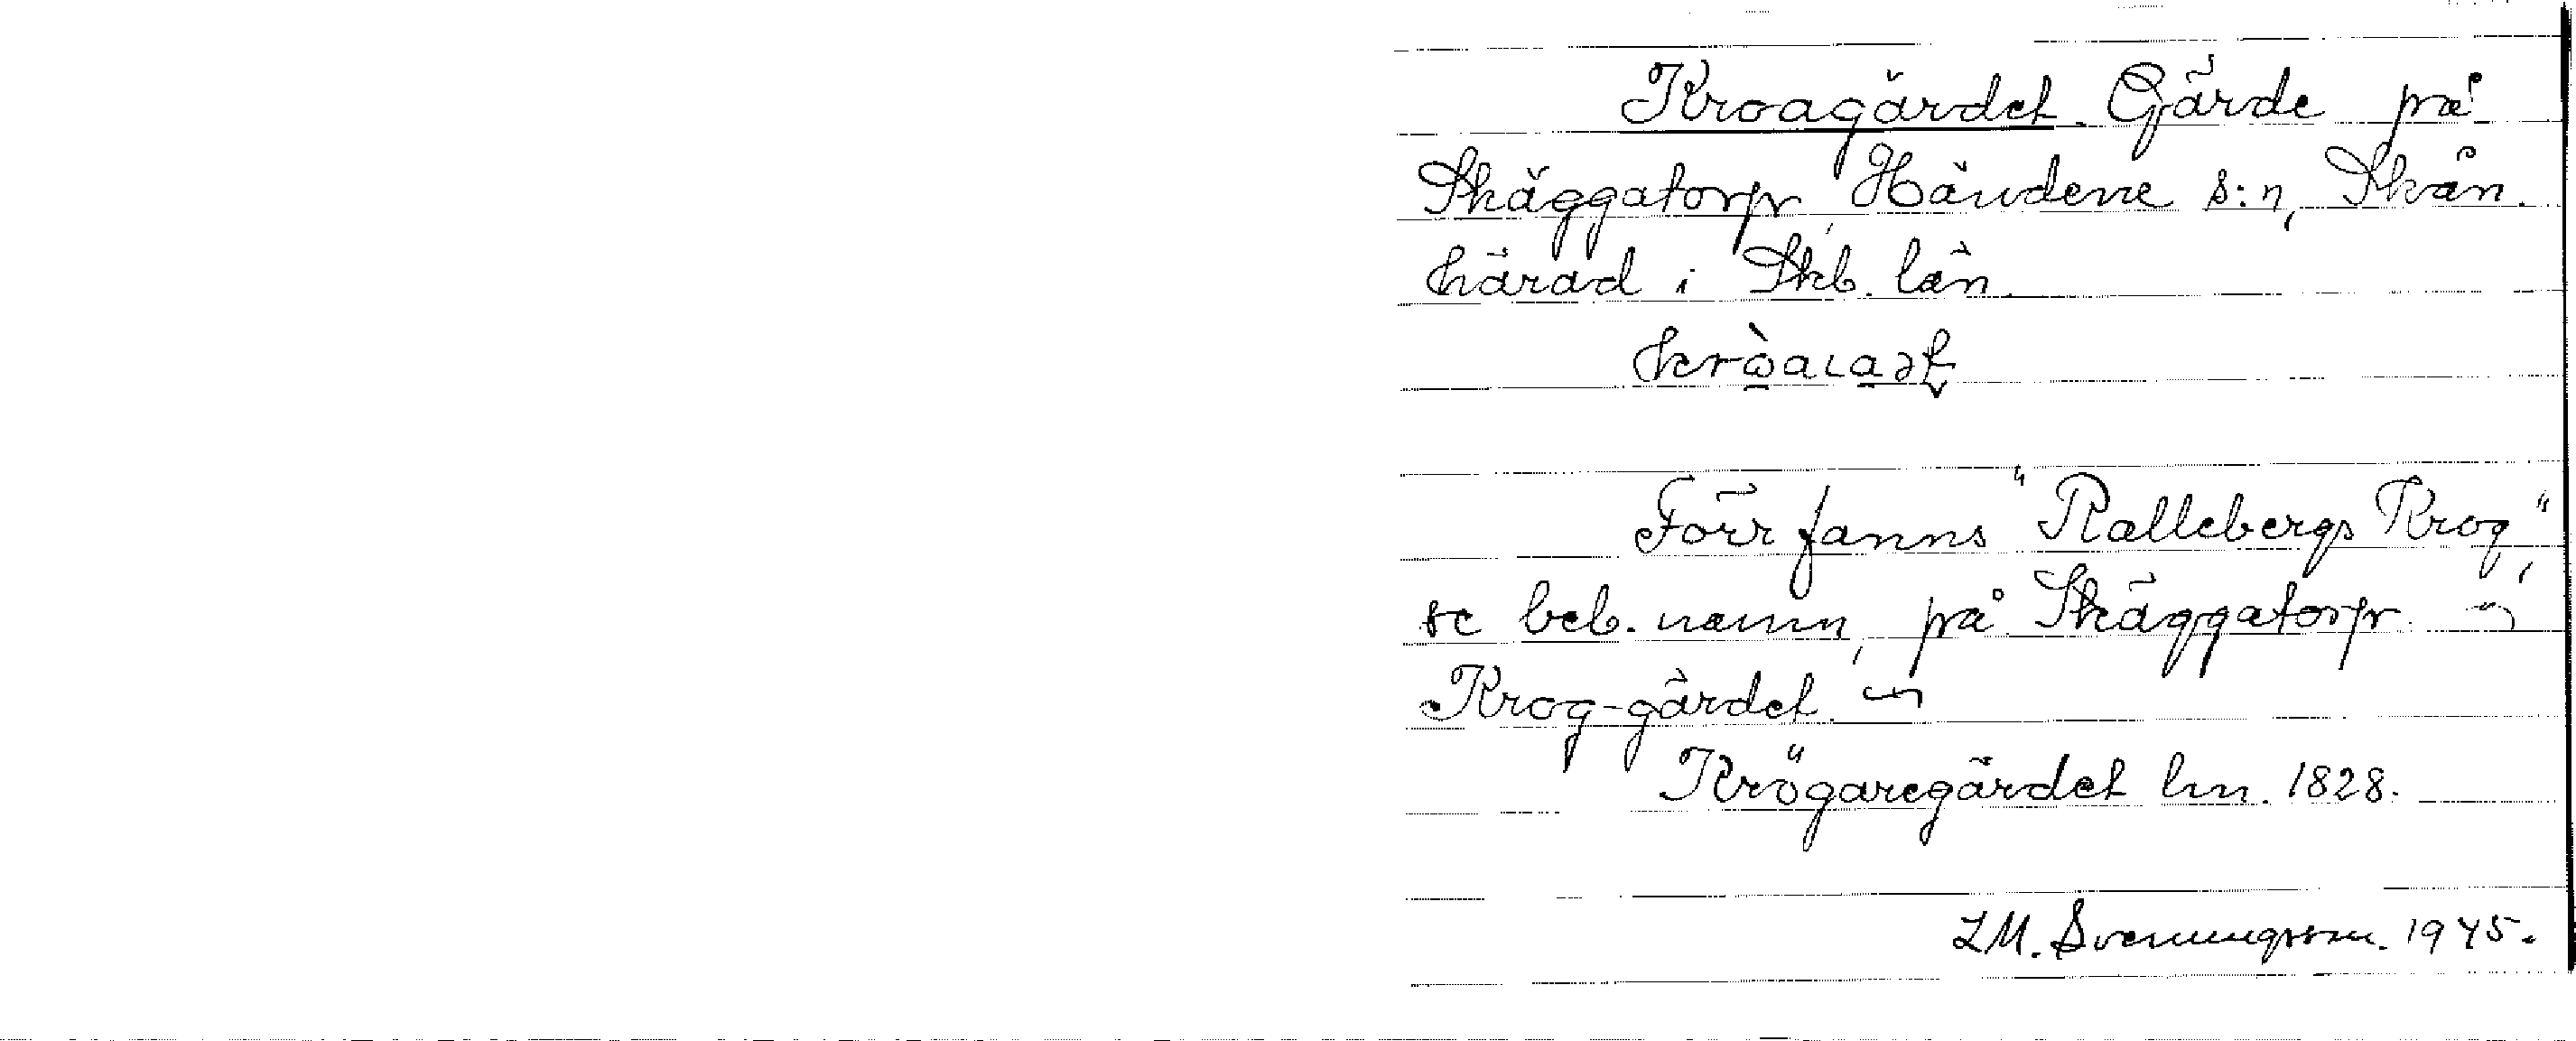 Kroagärdet. Gärde på
Skäggatorp, Händene s:n, Skån.
härad i Skb. län.
Förr fanns "Rallebergs Krog",
se beb. namn, på Skäggatorp.
Krog-gärdet.
Krögaregärdet lm. 1828.
LM. Svenungsson. 1945.